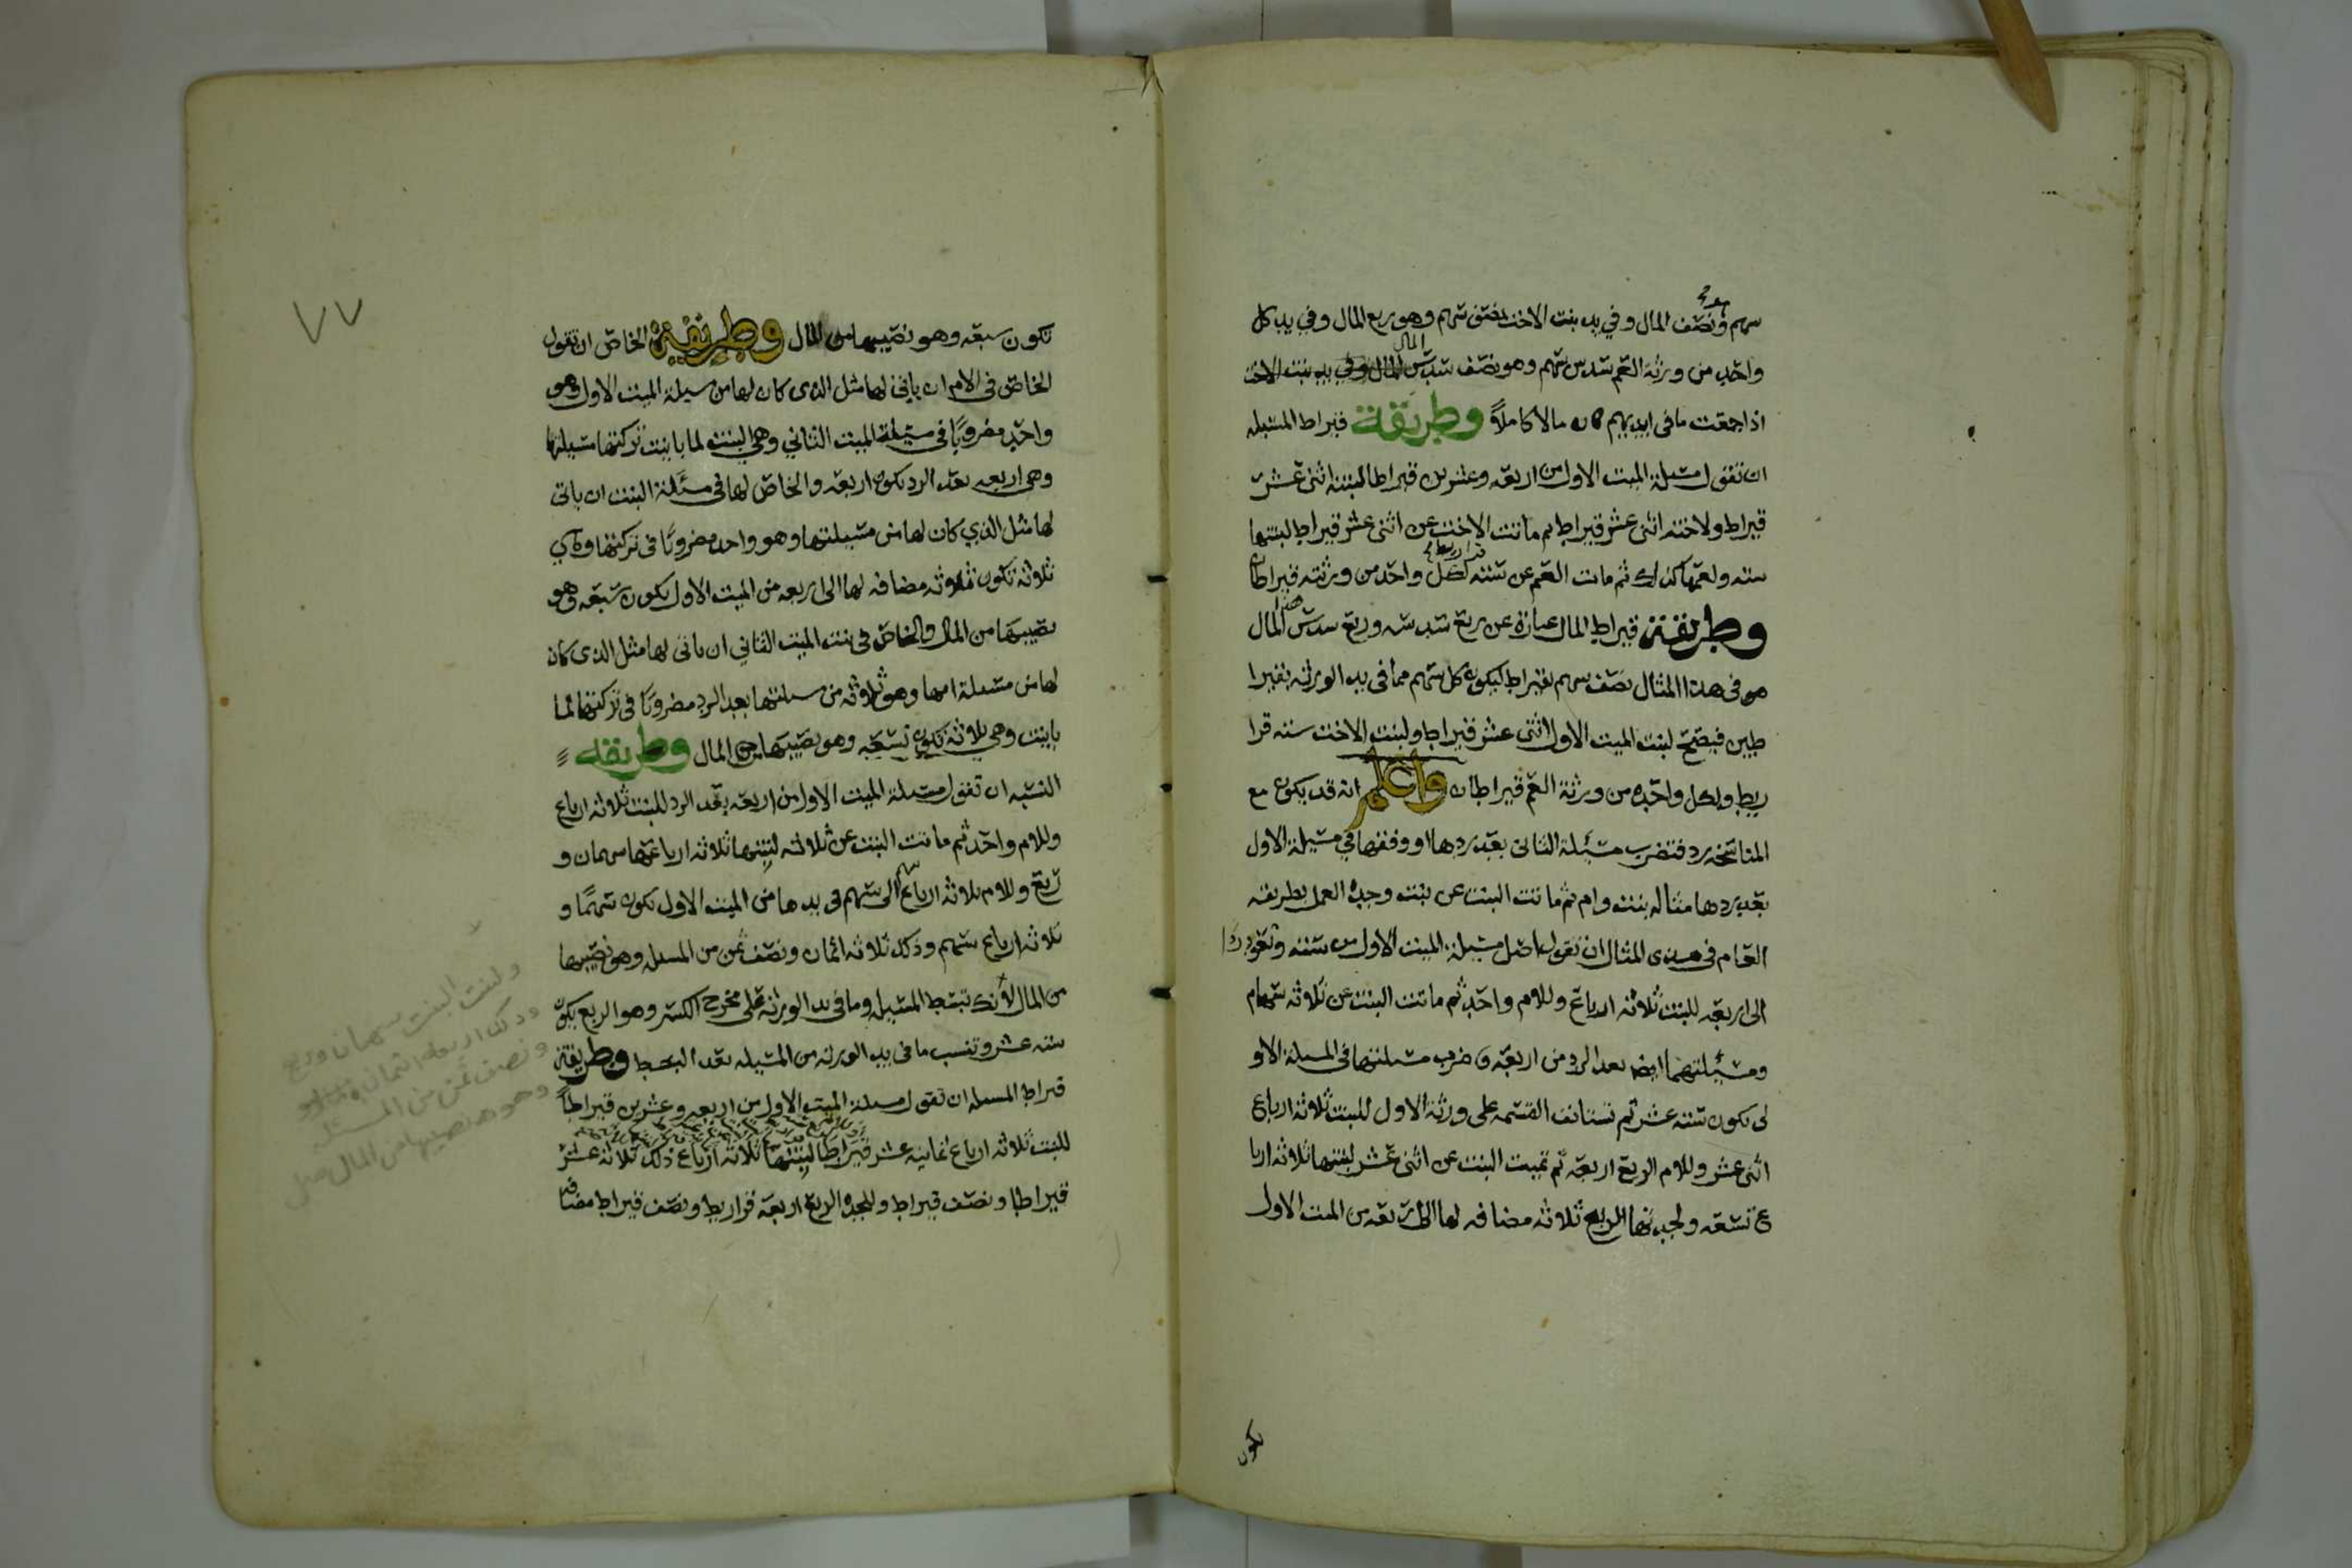 سهم ونصف المال وفي يد بنت الاخت نصف سهم وهو ربع المال وفي يد كل
واحد من ورثة العم سدس سهم وهو نصف سدس المال
اذا جمعت ما في ايديهم كان مالا كاملا وطريقة قيراط المسئله
ان تقول مسئلة الميت الاول من اربعه وعشرين قيراطا لبنته اثنى عشر
قيراط ولاخته اثنى عشر قيراط ثم ماتت الاخت عن اثنى عشر قيراط لبنتها
سته ولعمها كذلك ثم مات العم عن سته لكل واحد من ورثته قيراطان
وطريقة قيراط المال عبارة عن ربع سدسه وربع سدس هذا المال
هو في هذا المثال نصف سهم بقيراط ليكون كل سهم مما في يد الورثه بقيرا
طين فيصح لبنت الميت الاول اثنى عشر قيراط ولبنت الاخت سته قرا
ريط ولكل واحد من ورثة العم قيراطان واعلم انه قد يكون مع
المناسخه رد فتضرب مسئلة الثاني بعد ردها او وفقها في مسئلة الاول
بعد ردها مثاله بنت وام ثم ماتت البنت عن بنت وجده العمل بطريقه
العام في هذى المثال ان تقول اصل مسئلة الميت الاول من سته وتعود ردا
الى اربعه للبنت ثلاثه ارباع وللام واحد ثم ماتت البنت عن ثلاثه سهام
ومسئلتهما ايضا بعد الرد من اربعه فتضرب مسئلتها في المسئلة الاو
لى يكون سته عشر ثم تستانف القسمه على ورثة الاول للبنت ثلاثه ارباع
اثنى عشر وللام الربع اربعه ثم تميت البنت عن اثنى عشر لبنتها ثلاثه اربا
ع تسعه ولجدتها الربع ثلاثه مضافه لها الى اربعه من الميت الاول
تكون
٧٧
تكون سبعه وهو نصيبها من المال وطريقة الخاص ان تقول
الخاص في الام ان ياتي لها مثل الذى كان لها من مسيلة الميت الاول وهو
واحد مضروبًا في مسئلة الميت الثاني وهي البنت لما باينت تركتها مسئلتها
وهي اربعه بعد الرد يكون اربعه والخاص لها في مسئلة البنت ان ياتى
لها مثل الذي كان لها من مسئلتها وهو واحد مضروبًا في تركتها وهي
ثلاثه تكون ثلاثه مضافه لها الى اربعه من الميت الاول يكون سبعه وهو
نصيبها من المال والخاص في بنت الميت الثاني ان ياتى لها مثل الذى كان
لها من مسئلة امها وهو ثلاثه من مسئلتها بعد الرد مضروبًا في تركتها لما
باينت وهي ثلاثه تكون تسعه وهو نصيبها من المال وطريقة
النسبه ان تقول مسئلة الميت الاول من اربعه بعد الرد للبنت ثلاثه ارباع
وللام واحد ثم ماتت البنت عن ثلاثه لبنتها ثلاثه ارباعها سهمان و
ربع وللام ثلاثه ارباع سهم الى سهم في يدها من الميت الاول تكون سهمًا و
ثلاثه ارباع سهم وذلك ثلاثه اثمان ونصف ثمن من المسئله وهو نصيبها
من المال لانك تبسط المسئله وما في يد الورثه على مخرج الكسر وهو الربع يكون
سته عشر وتنسب ما في يد الورثه من المسئله بعد البسط وطريقة
قيراط المسئله ان تقول مسئلة الميت الاول من اربعه وعشرين قيراطًا
للبنت ثلاثه ارباع ثمانيه عشر قيراطا لبنتها ثلاثه ارباع ذلك ثلاثه عشر
قيراطا ونصف قيراط وللجده الربع اربعه قراريط ونصف قيراط مضافه
ولبنت البنت سهمان وربع
وذلك اربعة اثمان
ونصف ثمن من المسئله
وهو نصيبها من المال